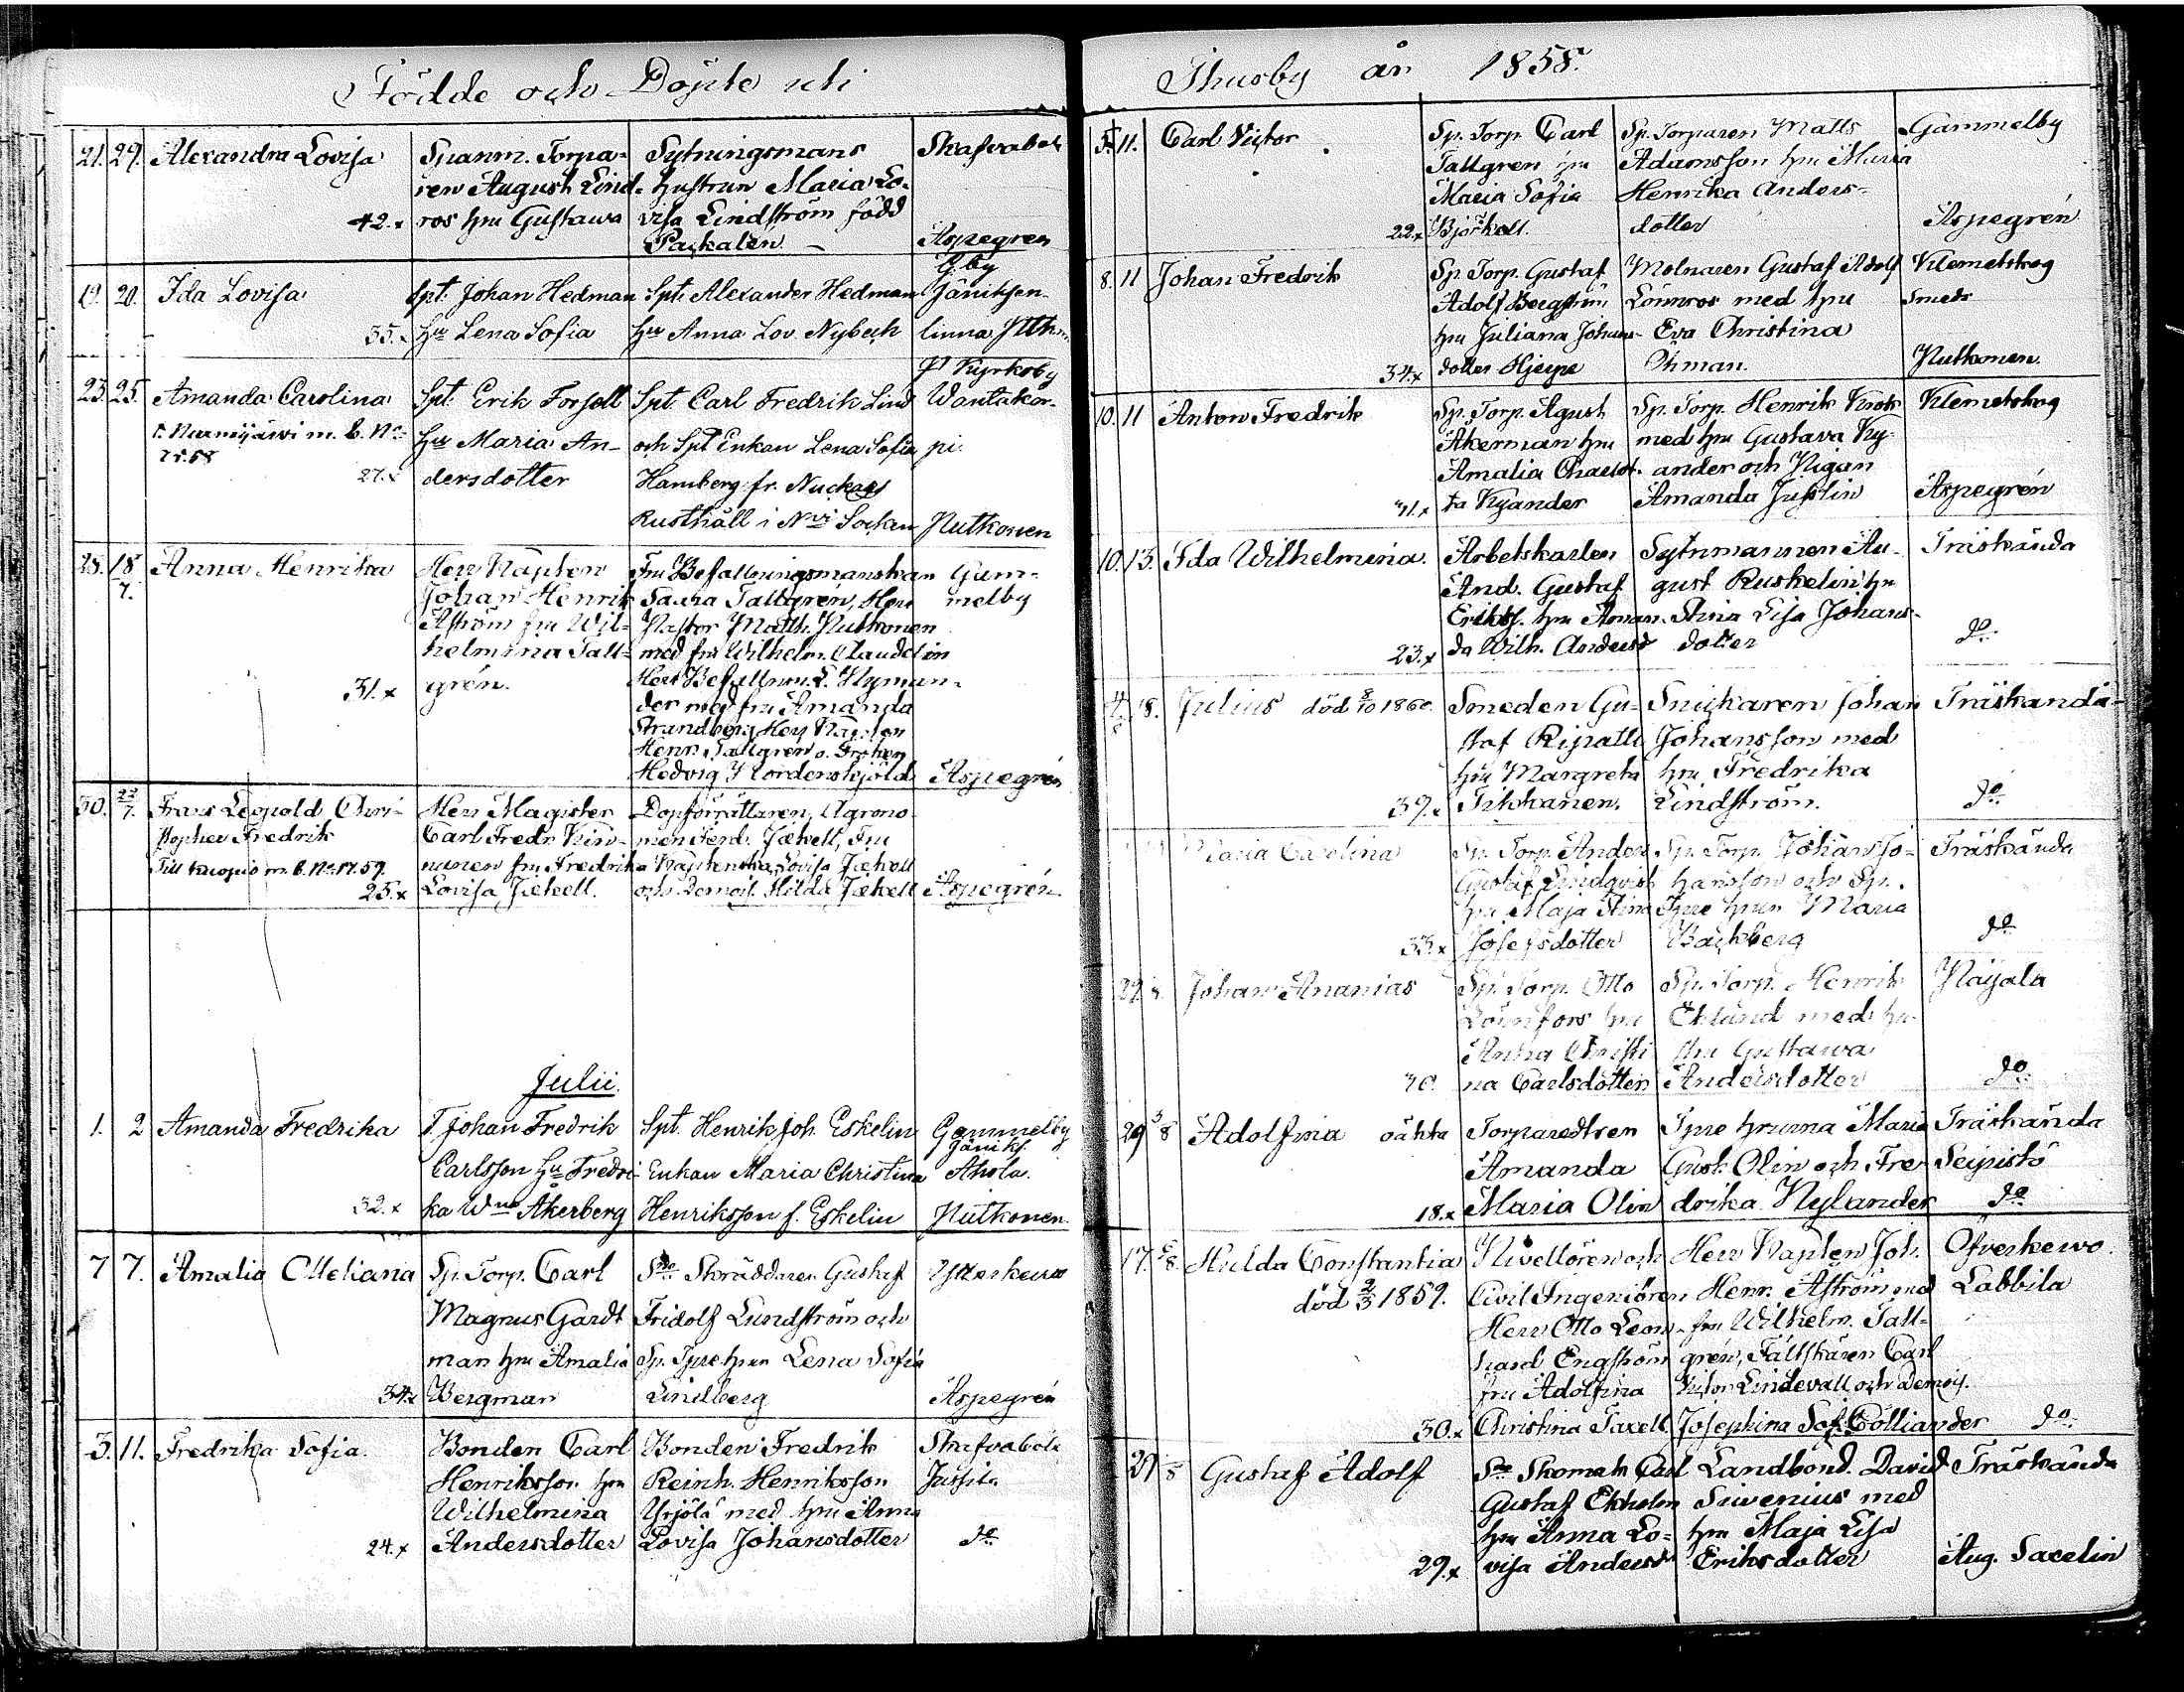 Födde och Döpte uti
21. 29. Alexandra Lovisa
42. x
Spanm. Torpa-
ren August Lind-
ros hru Gustawa
Sytningsmans
hustrun Maria Lo-
visa Lindström född
Packalen
Skafvaböle
Aspegren
19. 20. Ida Lovisa
35.
Spt. Johan Hedman
Hu Lena Sofia
Spt. Alexander Hedman
hu Anna Lov. Nybeck
G. by
Jäniksen-
linna
23. 25. Amanda Carolina
t. Nurmijärvi m. b. No
27. x
Spt. Erik Forsell
Hu Maria An-
dersdotter
Spt. Carl Fredrik Lind
och Spt Enkan Lena Sofia
Hamberg fr. Nuckars
Rusthåll i Nvi Socken
Kyrkoby
Wantakos-
pi.
Nutkonen
28. 18/7. Anna Henrika
31. x
Herr Kapten
Johan Henrik
Åström fru Wil-
helmina Tall-
grén.
Fru Befallningsmanskan
Tallgren, Herr
Pastor Matth. Nutkonen
med fru Wilhelm. Claudelin
Herr Befallnm.
der med fru Amanda
Strandberg, Herr Kapten
Henr. Tallgren o. Fröken
Hedvig Nordenskjöld
Gam-
melby
Aspegrén
30. 22/7. Frans Leopold Chri-
stopher Fredrik
Till Kuopio m. b. No 17. 59.
25. x
Herr Magister
Carl Fredr. Kin-
nunen fru Fredrika
Lovisa Jækell.
Dopförrättaren, Agrono-
men Ferd. Jækell, Fru
Kaptenska Lovisa Jækell
och Demois. Hilda Jækell
Aspegrén
Julii.
1. 2 Amanda Fredrika
32. x
T. Johan Fredrik
Carlsson Hu Fredri-
ka Wna Åkerberg
Spt. Henrik Joh. Eskelin
Enkan Maria Christina
Henriksson f. Eskelin
Gammelby
Jäniks.
Ahola.
Nutkonen.
7 7. Amalia Otteliana
34. x
Sp. Torp. Carl
Magnus Gardt
man hru Amalia
Bergman
Skräddaren Gustaf
Fridolf Lundström och
Sp. Tpre hrun Lena Sofia
Lindberg
Ytterkervo
Aspegrén
3. 11. Fredrika Sofia.
24. x
Bonden Carl
Henriksson hru
Wilhelmina
Andersdotter
Bonden Fredrik
Reinh. Henriksson
Yrjölä med hru Anna
Lovisa Johansdotter
Skafvaböle
Jussila
do
Thusby år 1858.
5. 11. Carl Victor
22. x
Sp. Torp. Carl
Tallgren hru
Maria Sofia
Björkell.
Sp. Torparen Matts
Adamsson hru Maria
Henrika Anders-
dotter
Gammelby
Aspegrén
8. 11 Johan Fredrik
34. x
Sp. Torp. Gustaf
Adolf Bergström
hru Juliana Johans-
dotter Hjerpe
Molnaren Gustaf Adolf
Lönnros med hru
Eva Christina
Öhman.
Klemetskog
Smeds
Nutkonen.
10. 11 Anton Fredrik
41. x
Sp. Torp. Agust
Åkerman hru
Amalia Charlot-
ta Kyander
Sp. Torp. Henrik Krok
med hru Gustava Ky-
ander och Pigan
Amanda Jusslin
Klemetskog
Aspegrén
10. 13. Ida Wilhelmina.
23. x
Arbetskarlen
And. Gustaf
Erikss. hru Aman-
da Wilh. Andersd
Sytnmannen Au-
gust Ruskelin hu
Stina Lisa Johans-
dotter
Träskända
do
18. Julius död 8/10 1860.
39. x
Smeden Gu-
staf Ripatti
hru Margreta
Tikkanen.
Snickaren Johan
Johansson med
hru Fredrika
Lindström.
Träskända
do
Maria Carolina
33. x
Sp. Torp. Anders
Gustaf Lindqvist
hru Maja Stina
Josefsdotter
Sp. Torp. Johan Jo-
hansson och Sp.
Tpre hrun Maria
Backberg
Träskända
do
29. Johan Ananias
Sp. Torp. Otto
Lönnfors hru
Anna Christi-
na Carlsdotter
Sp. Torp. Henrik
Eklund med hu-
stru Gustawa
Andersdotter
Paijala
do
29 3/8 Adolfina oäkta
18. x
Torparedtren
Amanda
Maria Olin
Tpre hrurna Maria
Gust. Olin och Fre-
drika Nylander
Träskända
Seipistö
do
17. 5/8. Hulda Constantia
död 2/3 1859.
30. x
Nivellören och
Civil Ingeniören
Herr Otto Leon-
hard Engström
fru Adolfina
Christina Taxell
Herr Kapten Joh.
Henr. Åström med
fru Wilhelm. Tall-
grén, Fältskären Carl
Victor Lindevall och Demois.
Josephina Sof. Colliander
Öfverkervo.
Labbila
do
29 8 Gustaf Adolf
29. x
Skomak Carl
Gustaf Ekholm
hru Anna Lo-
visa Andersdr
Landbond. David
Sivenius med
hru Maja Lisa
Eriksdotter
Träskända
Aug. Saxelin